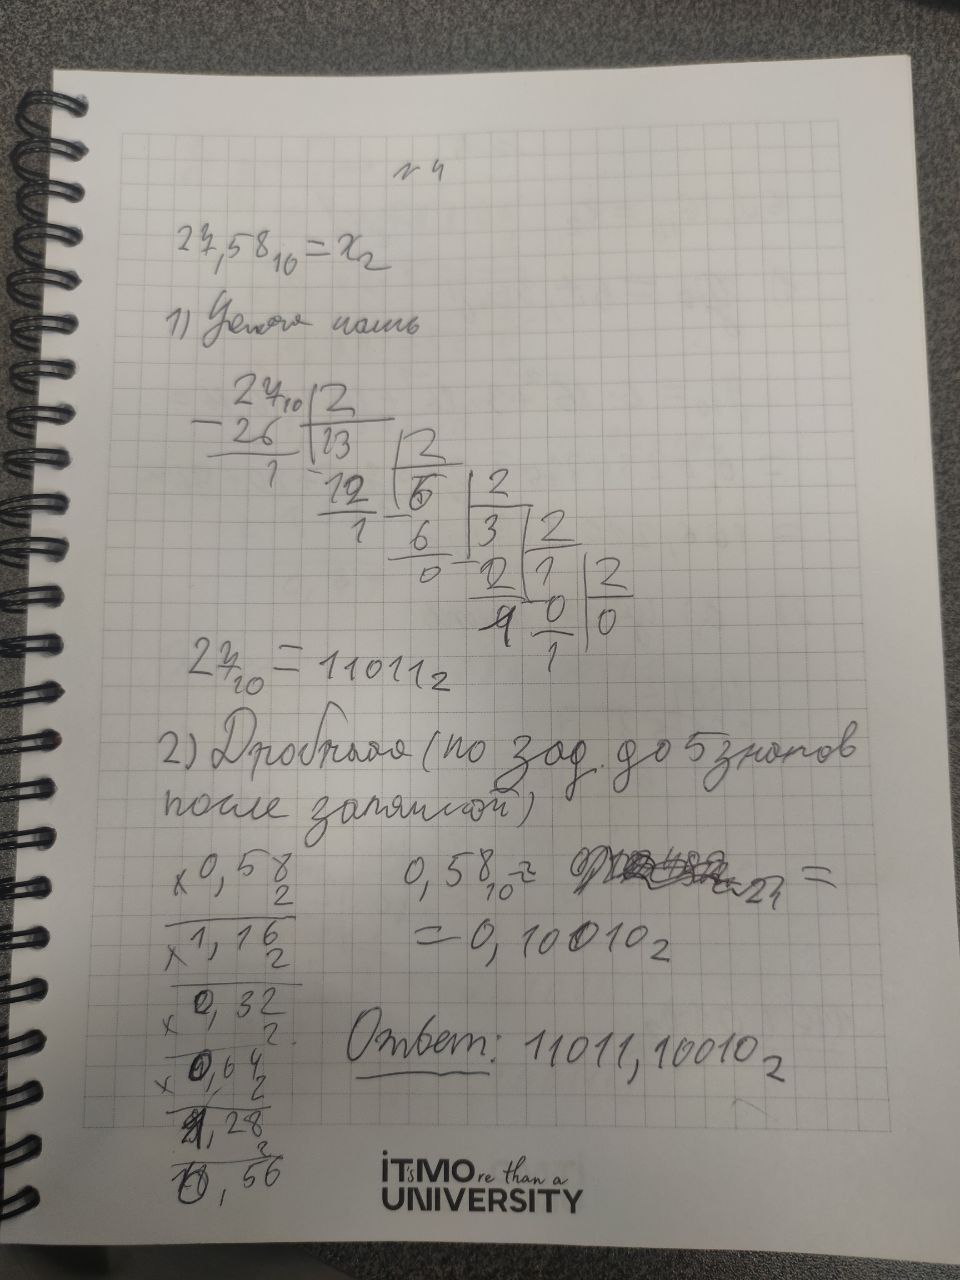 № 4
27,58₁₀ = x₂
1) Целая часть
27₁₀ | 2
- 26 | 13 | 2
1 - 12 | 6 | 2
1 - 6 | 3 | 2
0 - 2 | 1 | 2
1 - 0 | 0
1
27₁₀ = 11011₂
2) Дробная (по зад. до 5 знаков
после запятой)
× 0,58
2
× 1,16
2
× 0,32
2
× 0,64
2
1,28
2
0,56
0,58₁₀ = =
= 0,10010₂
Ответ: 11011,10010₂
iT'sMOre than a
UNIVERSITY